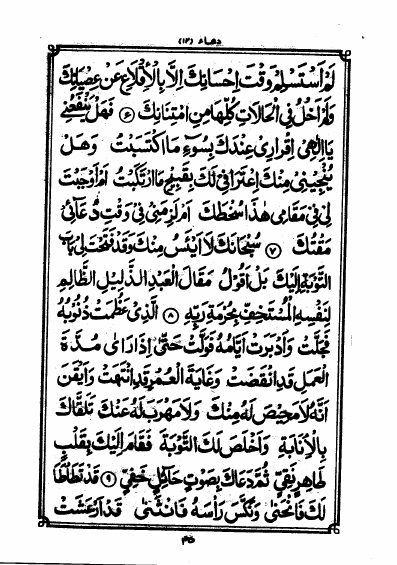 دعاء (۱۲)
لَمْ اَسْتَسْلِمْ وَقْتَ اِحْسَانِكَ اِلَّا بِالْاِقْلَاعِ عَنْ عِصْيَانِكَ
وَلَمْ اَخْلُ فِى الْحَالَاتِ كُلِّهَا مِنِ امْتِنَانِكَ ۶ فَهَلْ يَنْفَعُنِىْ
يَا اِلٰهِىْ اِقْرَارِىْ عِنْدَكَ بِسُوْٓءِ مَا اكْتَسَبْتُ وَهَلْ
يُنْجِيْنِىْ مِنْكَ اعْتِرَافِىْ لَكَ بِقَبِيْحِ مَا ارْتَكَبْتُ اَمْ اَوْجَبْتَ
لِىْ فِىْ مَقَامِىْ هٰذَا سُخْطَكَ اَمْ لَزِمَنِىْ فِىْ وَقْتِ دُعَآئِىْ
مَقْتُكَ ۷ سُبْحَانَكَ لَا اَيْئَسُ مِنْكَ وَقَدْ فَتَحْتَ لِىْ بَابَ
التَّوْبَةِ اِلَيْكَ بَلْ اَقُوْلُ مَقَالَ الْعَبْدِ الذَّلِيْلِ الظَّالِمِ
لِنَفْسِهِ الْمُسْتَخِفِّ بِحُرْمَةِ رَبِّهِ ۸ الَّذِىْ عَظُمَتْ ذُنُوْبُهُ
فَجَلَّتْ وَاَدْبَرَتْ اَيَّامُهُ فَوَلَّتْ حَتّٰى اِذَا رَاٰى مُدَّةَ
الْعَمَلِ قَدِ انْقَضَتْ وَغَايَةَ الْعُمُرِ قَدِ انْتَهَتْ وَاَيْقَنَ
اَنَّهُ لَا مَحِيْصَ لَهُ مِنْكَ وَلَا مَهْرَبَ لَهُ عَنْكَ تَلَقَّاكَ
بِالْاِنَابَةِ وَاَخْلَصَ لَكَ التَّوْبَةَ فَقَامَ اِلَيْكَ بِقَلْبٍ
طَاهِرٍ نَقِىٍّ ثُمَّ دَعَاكَ بِصَوْتٍ حَآئِلٍ خَفِىٍّ ۹ قَدْ تَطَأْطَأَ
لَكَ فَانْحَنٰى وَنَكَّسَ رَأْسَهُ فَانْثَنٰى قَدْ اَرْعَشَتْ